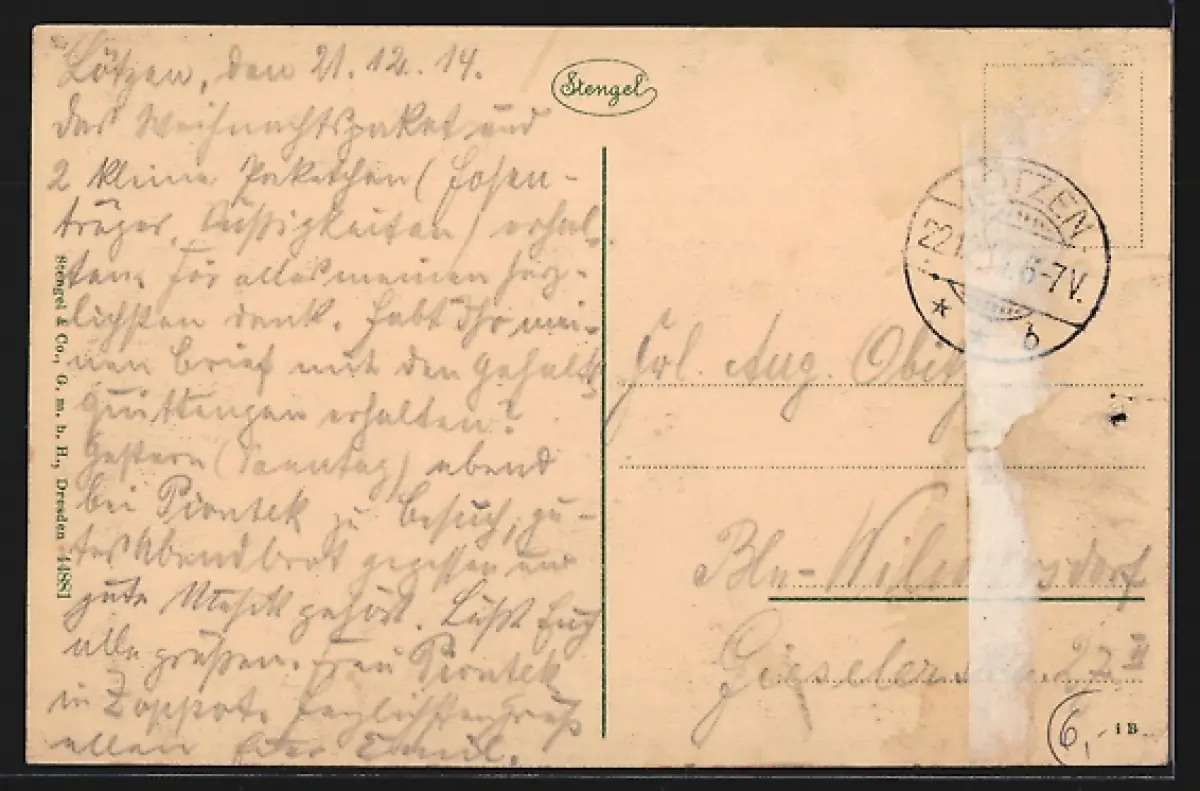 Lötzen, den 21.12.14.
Das Weihnachtspaket und
2 kleine Paketchen (Hosen-
träger, Süßigkeiten) erhal-
ten. Für alles meinen herz-
lichsten Dank. Habt Ihr mei-
nen Brief mit den Gehalts
quittungen erhalten?
Gestern (Sonntag) abend
bei Piontek zu Besuch, gu-
tes Abendbrot gegessen und
gute Musik gehört. Laßt Euch
alle grüßen. Frau Piontek
in Zoppot. Herzlichsten Gruß
allen Euer Emil.
Stengel & Co., G. m. b. H., Dresden 44881
Stengel
LÖTZEN
22.1 6-7V.
* * b
Frl. Aug.
Bln-Wilmersdorf
27 II
6,-
1 B